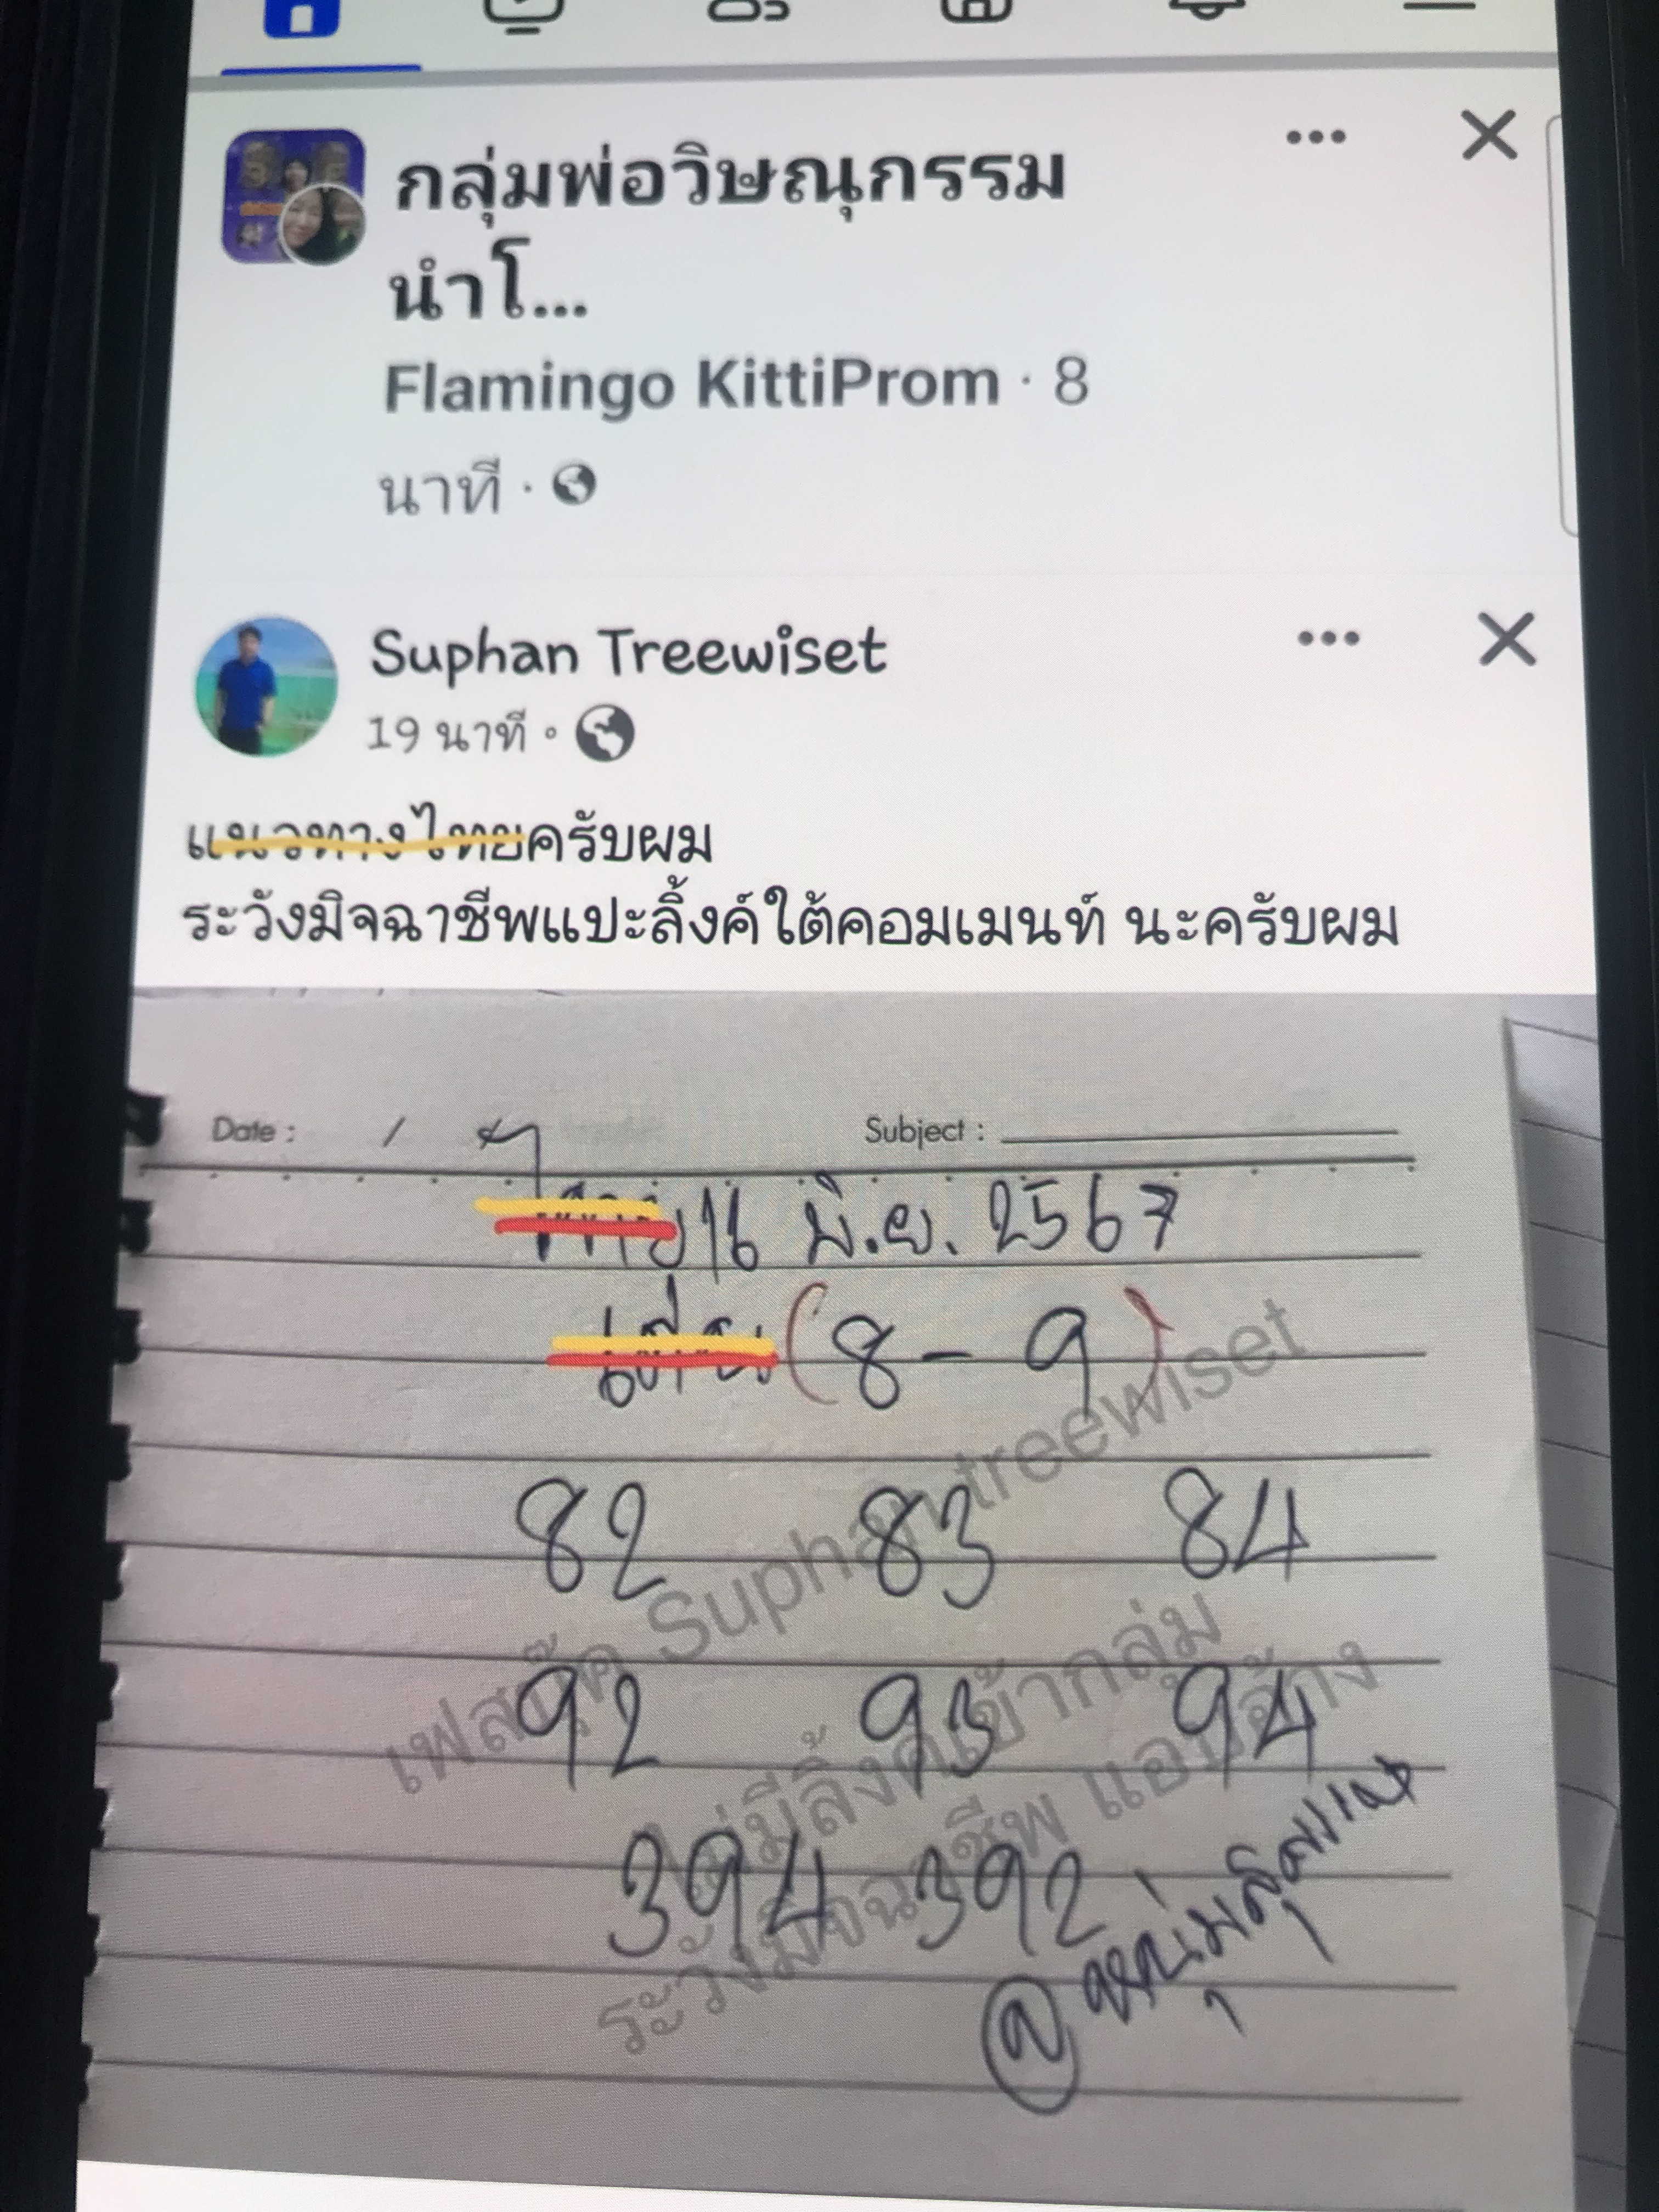 กลุ่มพ่อวิษณุกรรม
นำโ...
Flamingo KittiProm · 8
นาที ·
Suphan Treewiset
19 นาที ·
แนวทางไทยครับผม
ระวังมิจฉาชีพแปะลิ้งค์ใต้คอมเมนท์ นะครับผม
Date : / Subject :
16 มิ.ย. 2567
(8 - 9)
82 83 84
92 93 94
394 392
@หนุ่มสุพรรณ
เฟสบุ๊ค Suphan treewiset
ไม่มีลิ้งค์เข้ากลุ่ม
ระวังมิจฉาชีพ แอบอ้าง